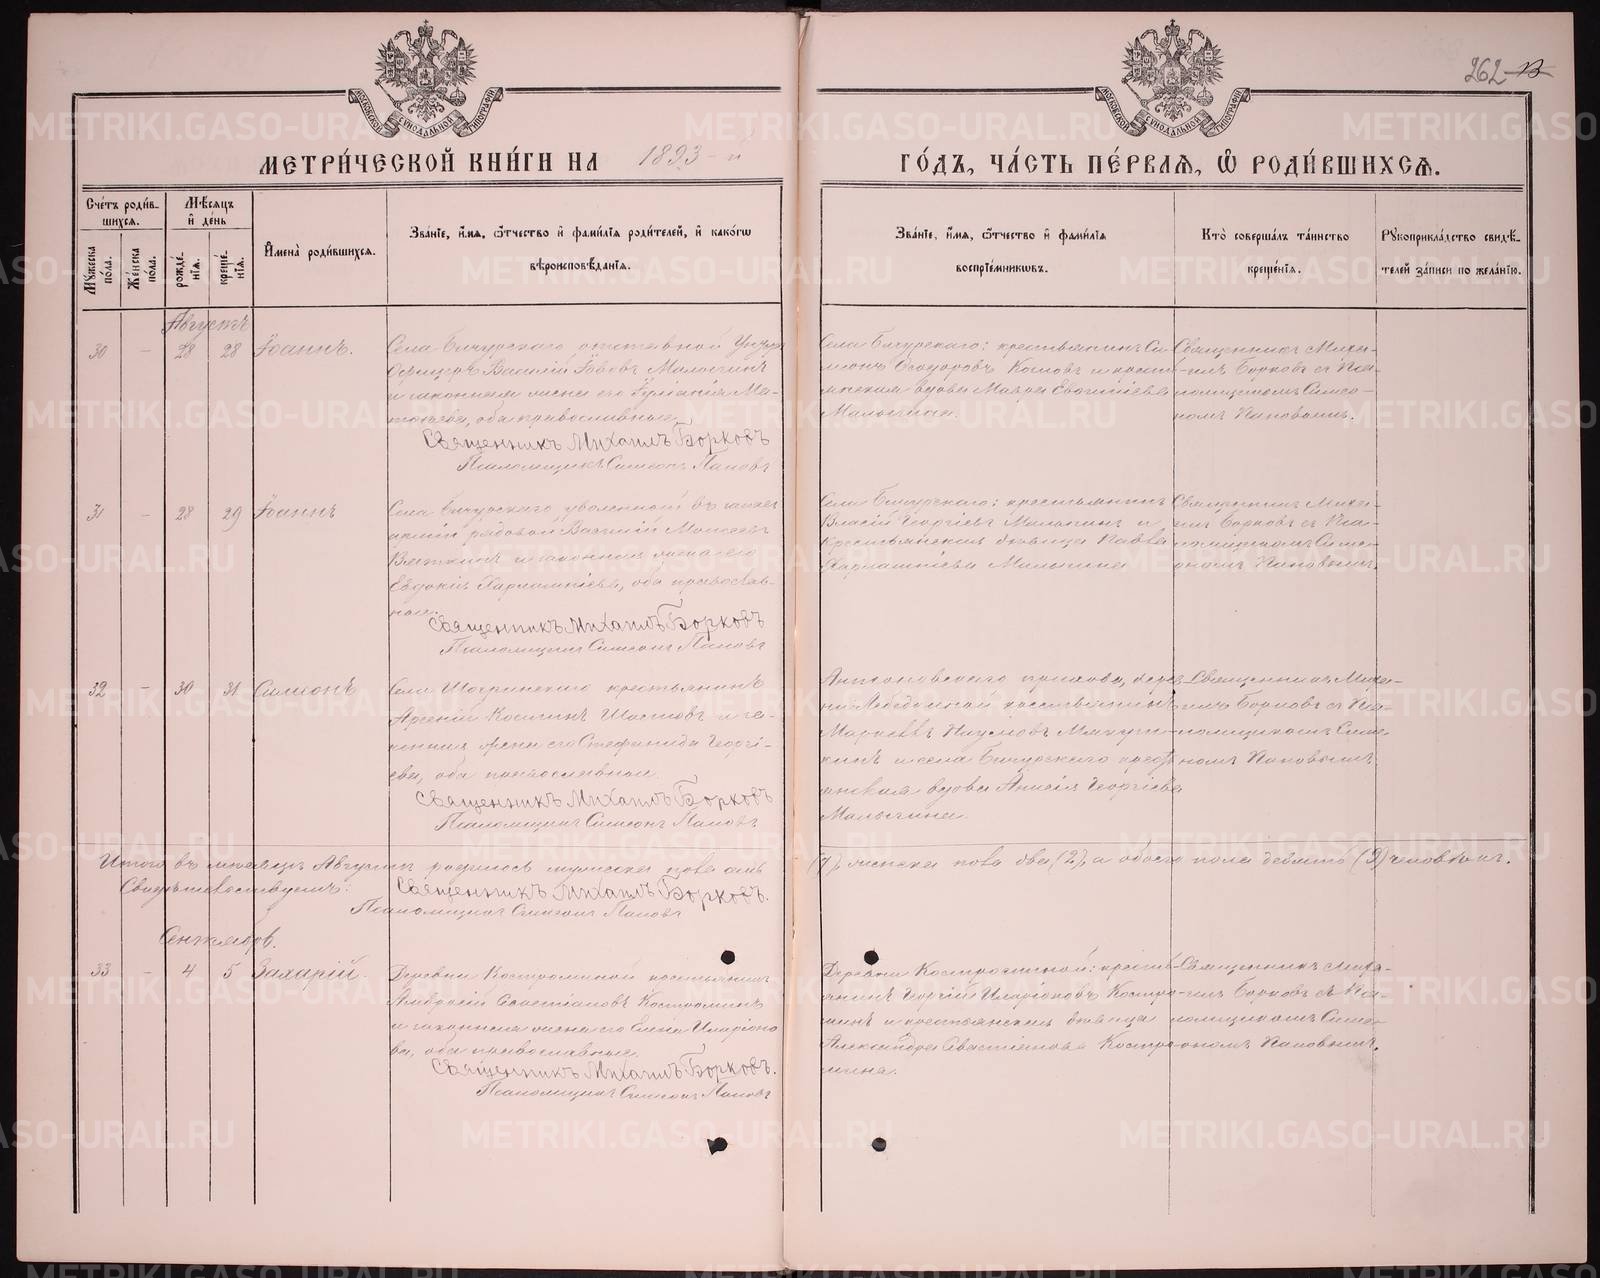 262 13
МЕТРИ́ЧЕСКОЙ КНИ́ГИ НА 1893-й ГО́ДЪ, ЧА́СТЬ ПЕ́РВАЯ, Ѽ РОДИ́ВШИХСЯ.
МОСКОВСКОЙ СѴНОДАЛЬНОЙ ТИПОГРАФИИ
МОСКОВСКОЙ СѴНОДАЛЬНОЙ ТИПОГРАФИИ
Сче́тъ роди́в-
шихся.
Му́жеска по́ла.
Же́нска по́ла.
Мѣ́сяцъ
и҆ де́нь
рожде́-
нїя.
креще́-
нїя.
И҆мена̀ роди́вшихся.
Зва́нїе, и҆́мя, ѻ҆́тчество и҆ фами́лїя роди́телей, и҆ како́гѡ
вѣроисповѣ́данїя.
Зва́нїе, и҆́мя, ѻ҆́тчество и҆ фами́лїя
воспрїе́мникѡвъ.
Кто̀ соверша́лъ та́инство
креще́нїя.
Рꙋкоприкла́дство свидѣ́-
телей за́писи по жела́нїю.
Августъ
30 - 28 28 Іоаннъ.
Села Бичурскаго отставной Унтеръ
Офицеръ Василій
и законная жена его
оба православные.
Священникъ Михаилъ Борковъ
Псаломщикъ Симеонъ Паповъ
Села Бичурскаго: крестьянинъ Си-
меонъ Ѳеодоровъ и кресть-
янская вдова Мавра
Малыгина.
Священникъ Миха-
илъ Борковъ съ Пса-
ломщикомъ Симео-
номъ Паповымъ.
31 - 28 29 Іоаннъ
Села Бичурскаго уволенной въ запасъ
арміи рядовой Василій Моисеевъ
Вяткинъ и законная жена его
Евдокія Харлампіева, оба православ-
ные.
Священникъ Михаилъ Борковъ
Псаломщикъ Симеонъ Паповъ
Села Бичурскаго: крестьянинъ
Власій Георгіевъ Малыгинъ и
крестьянская дѣвица Павла
Харлампіева Малыгина
Священникъ Миха-
илъ Борковъ съ Пса-
ломщикомъ Симе-
ономъ Паповымъ.
32 - 30 31 Симеонъ
Села Шогринскаго крестьянинъ
Арсеній Косминъ и за-
конная жена его Стефанида Георгі-
ева, оба православные.
Священникъ Михаилъ Борковъ
Псаломщикъ Симеонъ Паповъ
Антоновскаго прихода, дерев-
ни Лебедкиной крестьянинъ
Наумовъ Мякуш-
кинъ и села Бичурскаго кресть-
янская вдова Анисія Георгіева
Малыгина.
Священникъ Миха-
илъ Борковъ съ Пса-
ломщикомъ Симе-
ономъ Паповымъ
Итого въ мѣсяцѣ Августѣ родилось мужска пола семь (7), женска пола два (2), а обоего пола девять (9) человѣкъ.
Свидѣтельствуемъ: Священникъ Михаилъ Борковъ.
Псаломщикъ Симеонъ Паповъ
Сентябрь.
33 - 4 5 Захарій.
Деревни Костроминой крестьянинъ
Амвросій Севастіановъ Костроминъ
и законная жена его Елена Иларіоно-
ва, оба православные.
Священникъ Михаилъ Борковъ.
Псаломщикъ Симеонъ Паповъ
Деревни Костроминой: кресть-
янинъ Георгій Иларіоновъ Костро-
минъ и крестьянская дѣвица
Александра Севастіанова Костро-
мина.
Священникъ Миха-
илъ Борковъ съ Пса-
ломщикомъ Симе-
ономъ Паповымъ.
METRIKI.GASO-URAL.RU